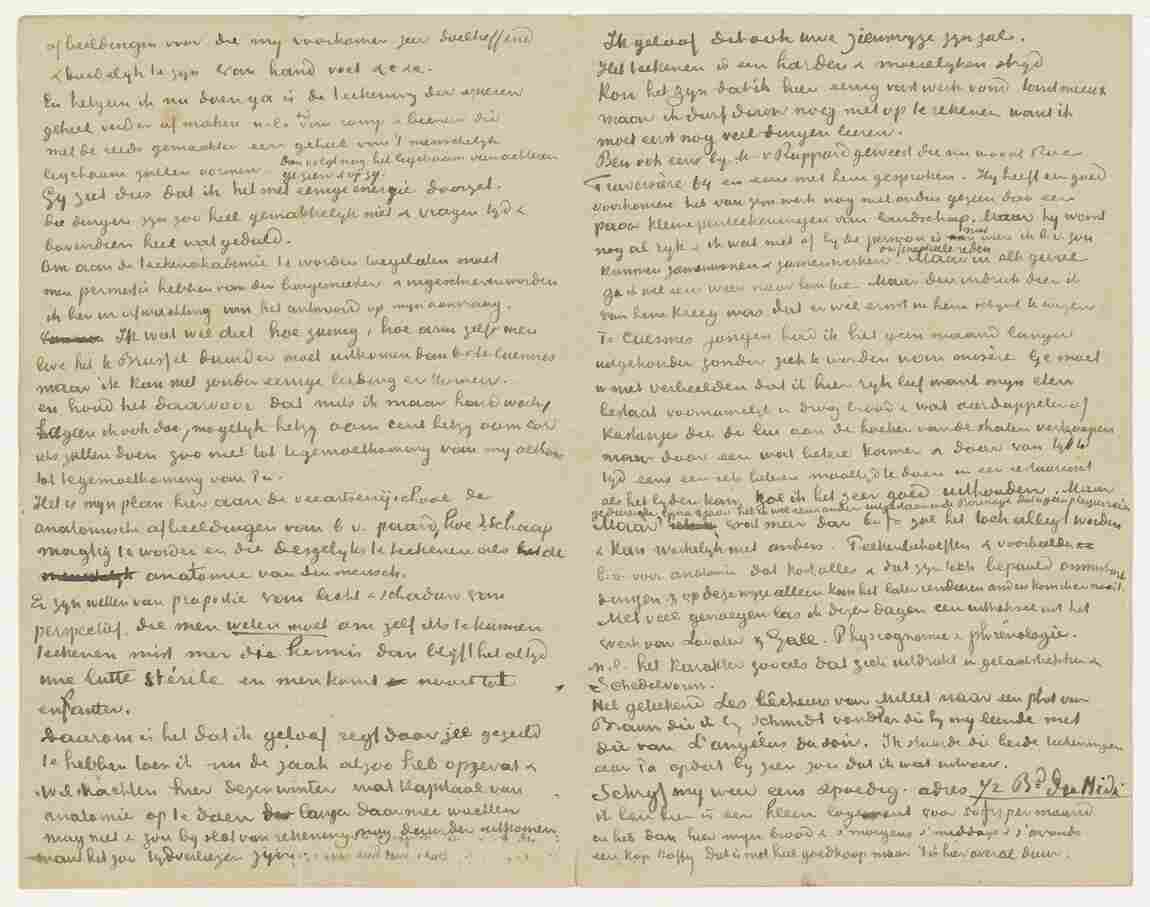 afbeeldingen voor die my voorkomen zeer doeltreffend
& duidelyk te zyn van hand voet &c &c.
En hetgeen ik nu doen ga is de teekening der spieren
geheel verder afmaken n.l. van romp & beenen die
met de reeds gemaakten een geheel van 't menschelyk
ligchaam zullen vormen. Dan volgt nog het ligchaam van achteren
gezien & op zy.
Gy ziet dus dat ik het met eenige energie doorzet.
die dingen zyn zoo heel gemakkelyk niet & vragen tyd &
bovendien heel wat geduld.
Om aan de teekenakademie te worden toegelaten moet
men permissie hebben van den burgemeester & ingeschreven worden
ik ben in afwachting van het antwoord op myn aanvraag.
Ik weet wel dat hoe zuinig, hoe arm zelfs men
leve het te Brussel duurder moet uitkomen dan b.v. te Cuesmes
maar ik kan niet zonder eenige leiding er komen.
en houd het daarvoor dat mits ik maar hard werk,
hetgeen ik ook doe, mogelyk hetzy oom Cent hetzy oom Cor
iets zullen doen zoo niet tot tegemoetkoming van my althans
tot tegemoetkoming van Pa.
Het is myn plan hier aan de veeartsenyschool de
anatomische afbeeldingen van b.v. paard, koe & schaap
magtig te worden en die desgelyks te teekenen als de
anatomie van den mensch.
Er zyn wetten van proportie van licht & schaduw van
perspectief, die men weten moet om zelf iets te kunnen
teekenen mist men die kennis dan blyft het altyd
une lutte stérile en men komt nooit tot
enfanter.
Daarom is het dat ik geloof regt daar zee gezeild
te hebben toen ik nu de zaak alzoo heb opgevat &
wil trachten hier dezen winter wat kapitaal van
anatomie op te doen langer daarmee wachten
mag niet & zou by slot van rekening nog duurder uitkomen
want het zou tydverliezen zyn.
Ik geloof dat ook uwe zienswyze zyn zal.
Het teekenen is een harden & moeielyken stryd
Kon het zyn dat ik hier eenig vast werk vond tant mieux
maar ik durf daar nog niet op te rekenen want ik
moet eerst nog veel dingen leeren.
Ben ook eens by Mr v Rappard geweest die nu woont Rue
Traversière 64 en eens met hem gesproken. Hy heeft een goed
voorkomen heb van zyn werk nog niet anders gezien dan een
paar kleine penteekeningen van landschap. Maar hy woont
nogal ryk & ik weet niet of hy de persoon is met wien ik b.v. zou
om financieele reden
kunnen samenwonen & samenwerken. Maar in elk geval
ga ik wel eens weer naar hem toe. Maar den indruk dien ik
van hem kreeg was dat er wel ernst in hem schynt te wezen
Te Cuesmes jongen had ik het geen maand langer
uitgehouden zonder ziek te worden van misère. Ge moet
u niet verbeelden dat ik hier ryk leef want myn eten
bestaat voornamelyk in droog brood & wat aardappelen of
kastanjes die de lui aan de hoeken van de straten verkoopen
maar door een wat betere kamer & door van tyd tot
tyd eens een iets beteren maaltyd te doen in een restaurant
als het lyden kan, zal ik het zeer goed uithouden. Maar
gedurende byna 2 jaar heb ik wel een & ander uitgestaan in de Borinage dat is geen pleizierreis
Maar wat meer dan fr. zal het toch allegt worden
& kan werkelyk niet anders. Teekenbehoeften & voorbeelden
b.v. voor anatomie dat kost alles & dat zyn toch bepaald onmisbare
dingen & op deze wyze alleen kan het later renderen anders kom ik er nooit.
Met veel genoegen las ik dezer dagen een uittreksel uit het
werk van Lavater & Gall. Physiognomie & phrénologie.
n.l. het karakter zooals dat zich uitdrukt in gelaatstrekken &
Schedelvorm.
Heb geteekend Les bêcheurs van Millet naar een phot. van
Braun die ik by Schmidt vond & die hy my leende met
die van L'angélus du soir. Ik stuurde die beide teekeningen
aan Pa opdat hy zien zou dat ik wat uitvoer.
Schryf my weer eens spoedig. adres 72 Bd du Midi
ik ben hier in een klein logement voor 50 frs per maand
en heb dan hier myn brood & s'morgens s'middags & s'avonds
een kop koffy dat is niet heel goedkoop maar 't is hier overal duur.